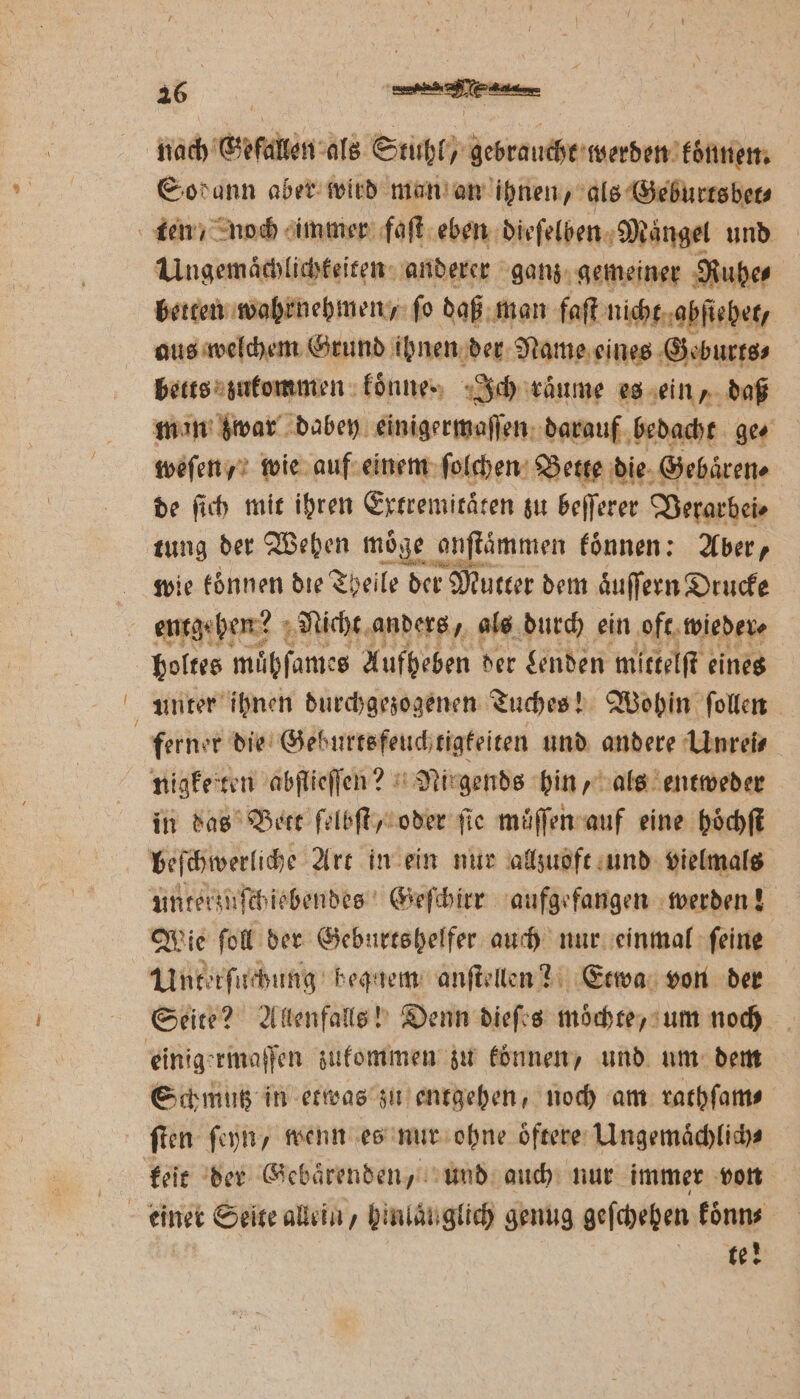 26
nach Gefallen als Stuhl, gebraucht werden können.
Sodann aber wird man an ihnen, als Geburtsbet⸗
ten, noch immer faſt eben dieſelben Mängel und
Ungemächlichkeiten anderer ganz gemeiner Ruhe⸗
betten wahrnehmen, ſo daß man faſt nicht abſiehet,
aus welchem Grund ihnen der Name eines Geburts⸗
betts zukommen könne. Ich räume es ein, daß
man zwar dabey einigermaſſen darauf bedacht ge⸗
weſen, wie auf einem ſolchen Bette die Gebären⸗
de ſich mit ihren Extremitäten zu beſſerer Verarbei⸗
tung der Wehen möge anſtämmen können: Aber,
wie können die Theile der Mutter dem äuſſern Drucke
entgehen? Nicht anders, als durch ein oft wieder⸗
holtes mühſames Aufheben der Lenden mittelſt eines
unter ihnen durchgezogenen Tuches! Wohin ſollen
ferner die Geburtsfeuchtigkeiten und andere Unrei⸗
nigkeiten abflieſſen? Nirgends hin, als entweder
in das Bett ſelbſt, oder ſie müſſen auf eine höchſt
beſchwerliche Art in ein nur allzuoft und vielmals
unterzuſchiebendes Geſchirr aufgefangen werden!
Wie ſoll der Geburtshelfer auch nur einmal ſeine
Unterſuchung bequem anſtellen? Etwa von der
Seite? Allenfalls! Denn dieſes möchte, um noch
einigermaſſen zukommen zu können, und um dem
Schmutz in etwas zu entgehen, noch am rathſam⸗
ſten ſeyn, wenn es nur ohne öftere Ungemächlich⸗
keit der Gebärenden, und auch nur immer von
einer Seite allein, hinlänglich genug geſchehen könn⸗
te!